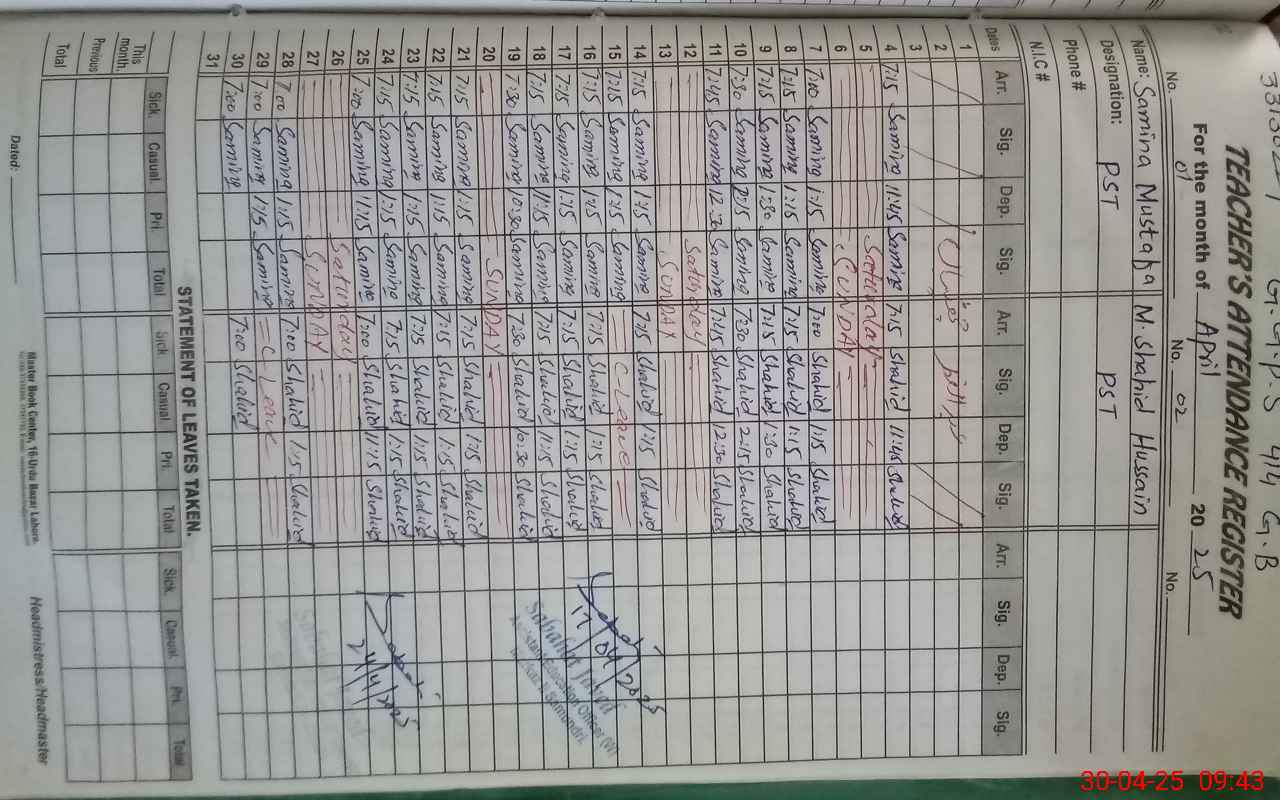 G.GPS 414 G.B
TEACHER'S ATTENDANCE REGISTER
For the month of April 20 25
No. 01 No. 02 No.
Name: Samina Mustafa M. Shahid Hussain
Designation: PST PST
Phone #
N.I.C #
Dates Arr. Sig. Dep. Sig. Arr. Sig. Dep. Sig. Arr. Sig. Dep. Sig.
1
2
3
4 7:15 Samina 11:45 Samina 7:15 Shahid 11:45 Shahid
5 Saturday
6 SUNDAY
7 7:00 Samina 1:15 Samina 7:00 Shahid 1:15 Shahid
8 7:15 Samina 1:15 Samina 7:15 Shahid 1:15 Shahid
9 7:15 Samina 1:30 Samina 7:15 Shahid 1:30 Shahid
10 7:30 Samina 2:15 Samina 7:30 Shahid 2:15 Shahid
11 7:45 Samina 12:30 Samina 7:45 Shahid 12:30 Shahid
12 Saturday
13 SUNDAY
14 7:15 Samina 1:15 Samina 7:15 Shahid 1:15 Shahid
15 7:15 Samina 1:15 Samina C-Leave
16 7:15 Samina 1:15 Samina 7:15 Shahid 1:15 Shahid
17 7:15 Samina 1:15 Samina 7:15 Shahid 1:15 Shahid
18 7:15 Samina 11:15 Samina 7:15 Shahid 11:15 Shahid
19 7:30 Samina 10:30 Samina 7:30 Shahid 10:30 Shahid
20 SUNDAY
21 7:15 Samina 1:15 Samina 7:15 Shahid 1:15 Shahid
22 7:15 Samina 1:15 Samina 7:15 Shahid 1:15 Shahid
23 7:15 Samina 1:15 Samina 7:15 Shahid 1:15 Shahid
24 7:15 Samina 1:15 Samina 7:15 Shahid 1:15 Shahid
25 7:00 Samina 11:15 Samina 7:00 Shahid 11:15 Shahid
26 Saturday
27 SUNDAY
28 7:00 Samina 1:15 Samina 7:00 Shahid 1:15 Shahid
29 7:00 Samina 1:15 Samina C Leave
30 7:00 Samina 7:00 Shahid
31
17/04/2025
Assistant Education Officer (W)
24/4/2025
STATEMENT OF LEAVES TAKEN.
Sick Casual Pri. Total Sick Casual Pri. Total Sick Casual Pri. Total
This month.
Previous
Total
Dated:
Master Book Center, 16-Urdu Bazar Lahore.
Headmistress/Headmaster
30-04-25 09:43